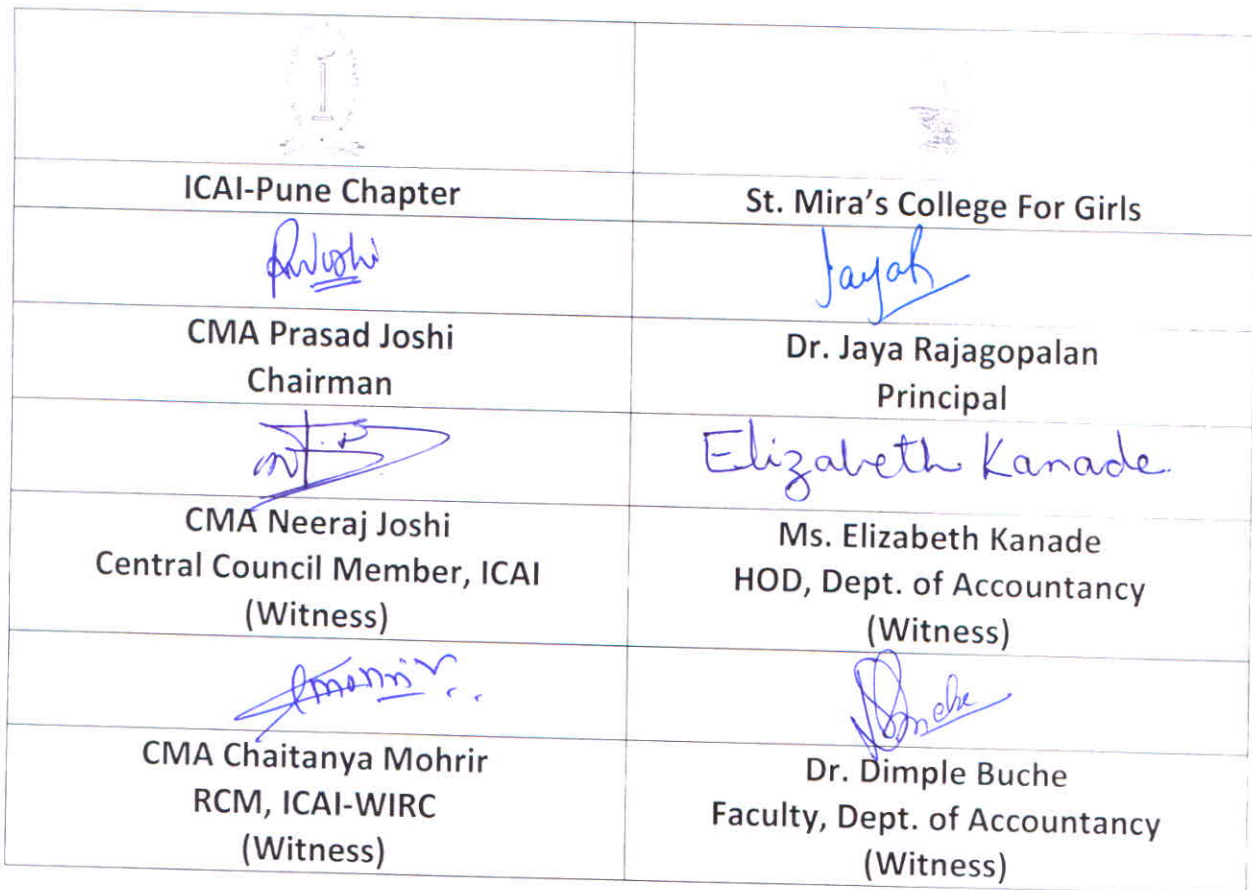 ICAI-Pune Chapter
St. Mira's College For Girls
Jayah
CMA Prasad Joshi
Chairman
Dr. Jaya Rajagopalan
Principal
Elizabeth Kanade
CMA Neeraj Joshi
Central Council Member, ICAI
(Witness)
Ms. Elizabeth Kanade
HOD, Dept. of Accountancy
(Witness)
CMA Chaitanya Mohrir
RCM, ICAI-WIRC
(Witness)
Dr. Dimple Buche
Faculty, Dept. of Accountancy
(Witness)